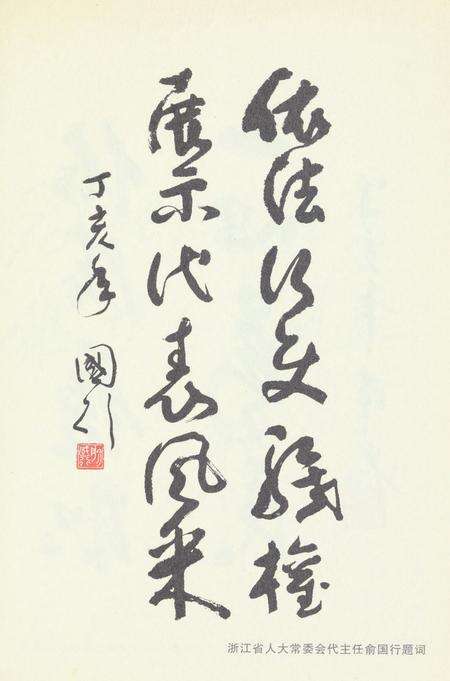 依法行使職權
展示代表風采
丁亥年 國行
浙江省人大常委会代主任俞国行题词